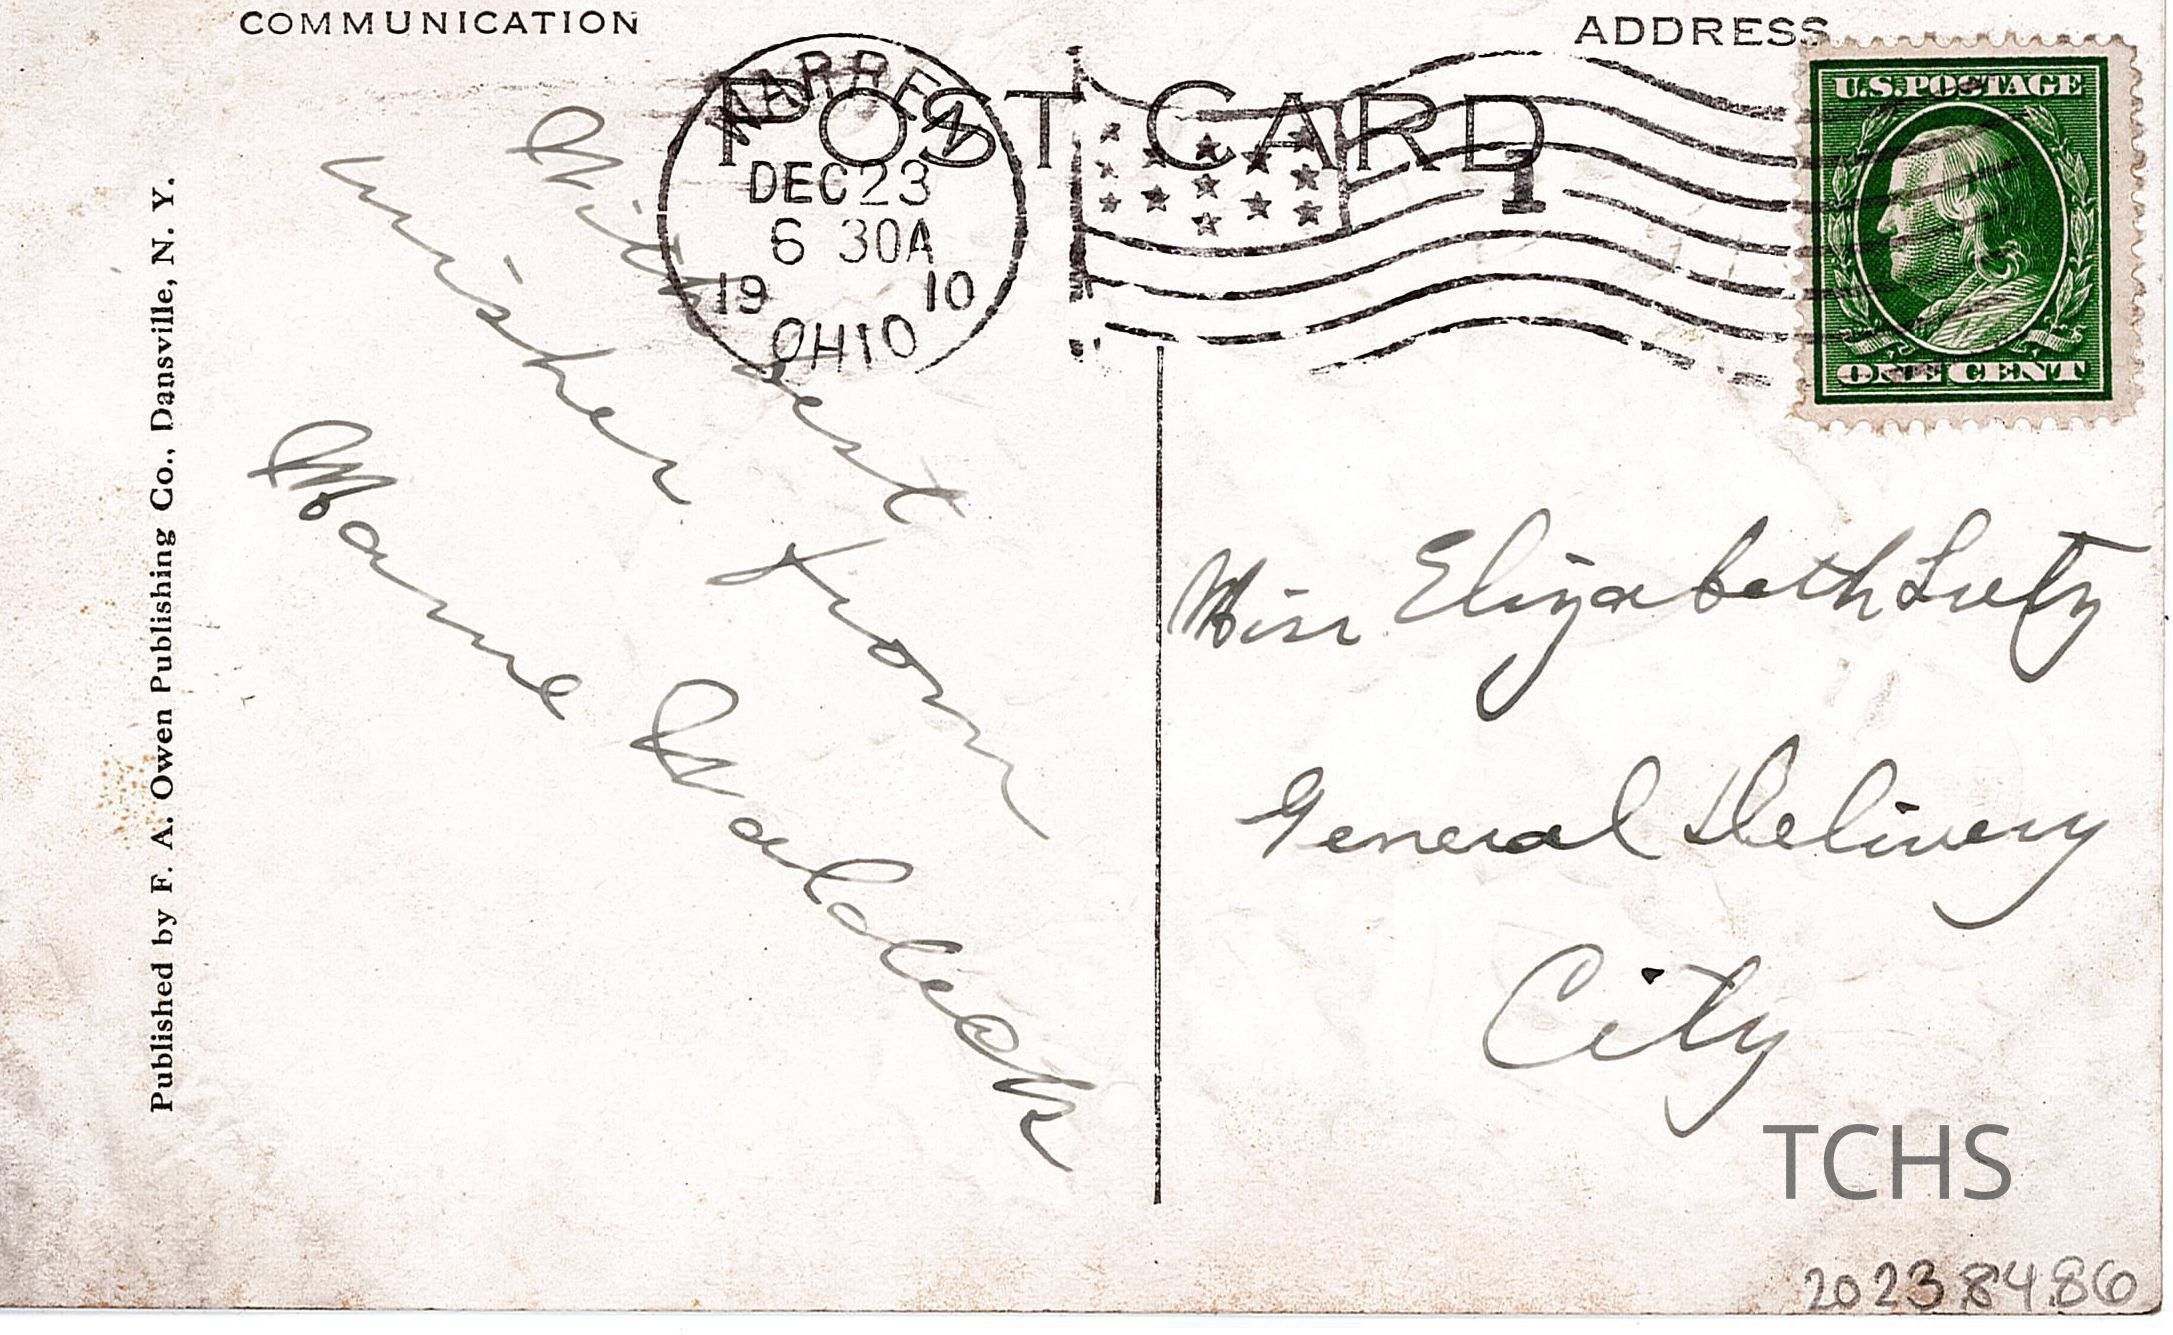 COMMUNICATION
ADDRESS
POST CARD
WARREN
DEC 23
6 30A
19 10
OHIO
1
U.S. POSTAGE
ONE CENT
With best
wishes from
Mame Waldeck
Miss Elizabeth Lutz
General Delivery
City
Published by F. A. Owen Publishing Co., Dansville, N. Y.
TCHS
20238486